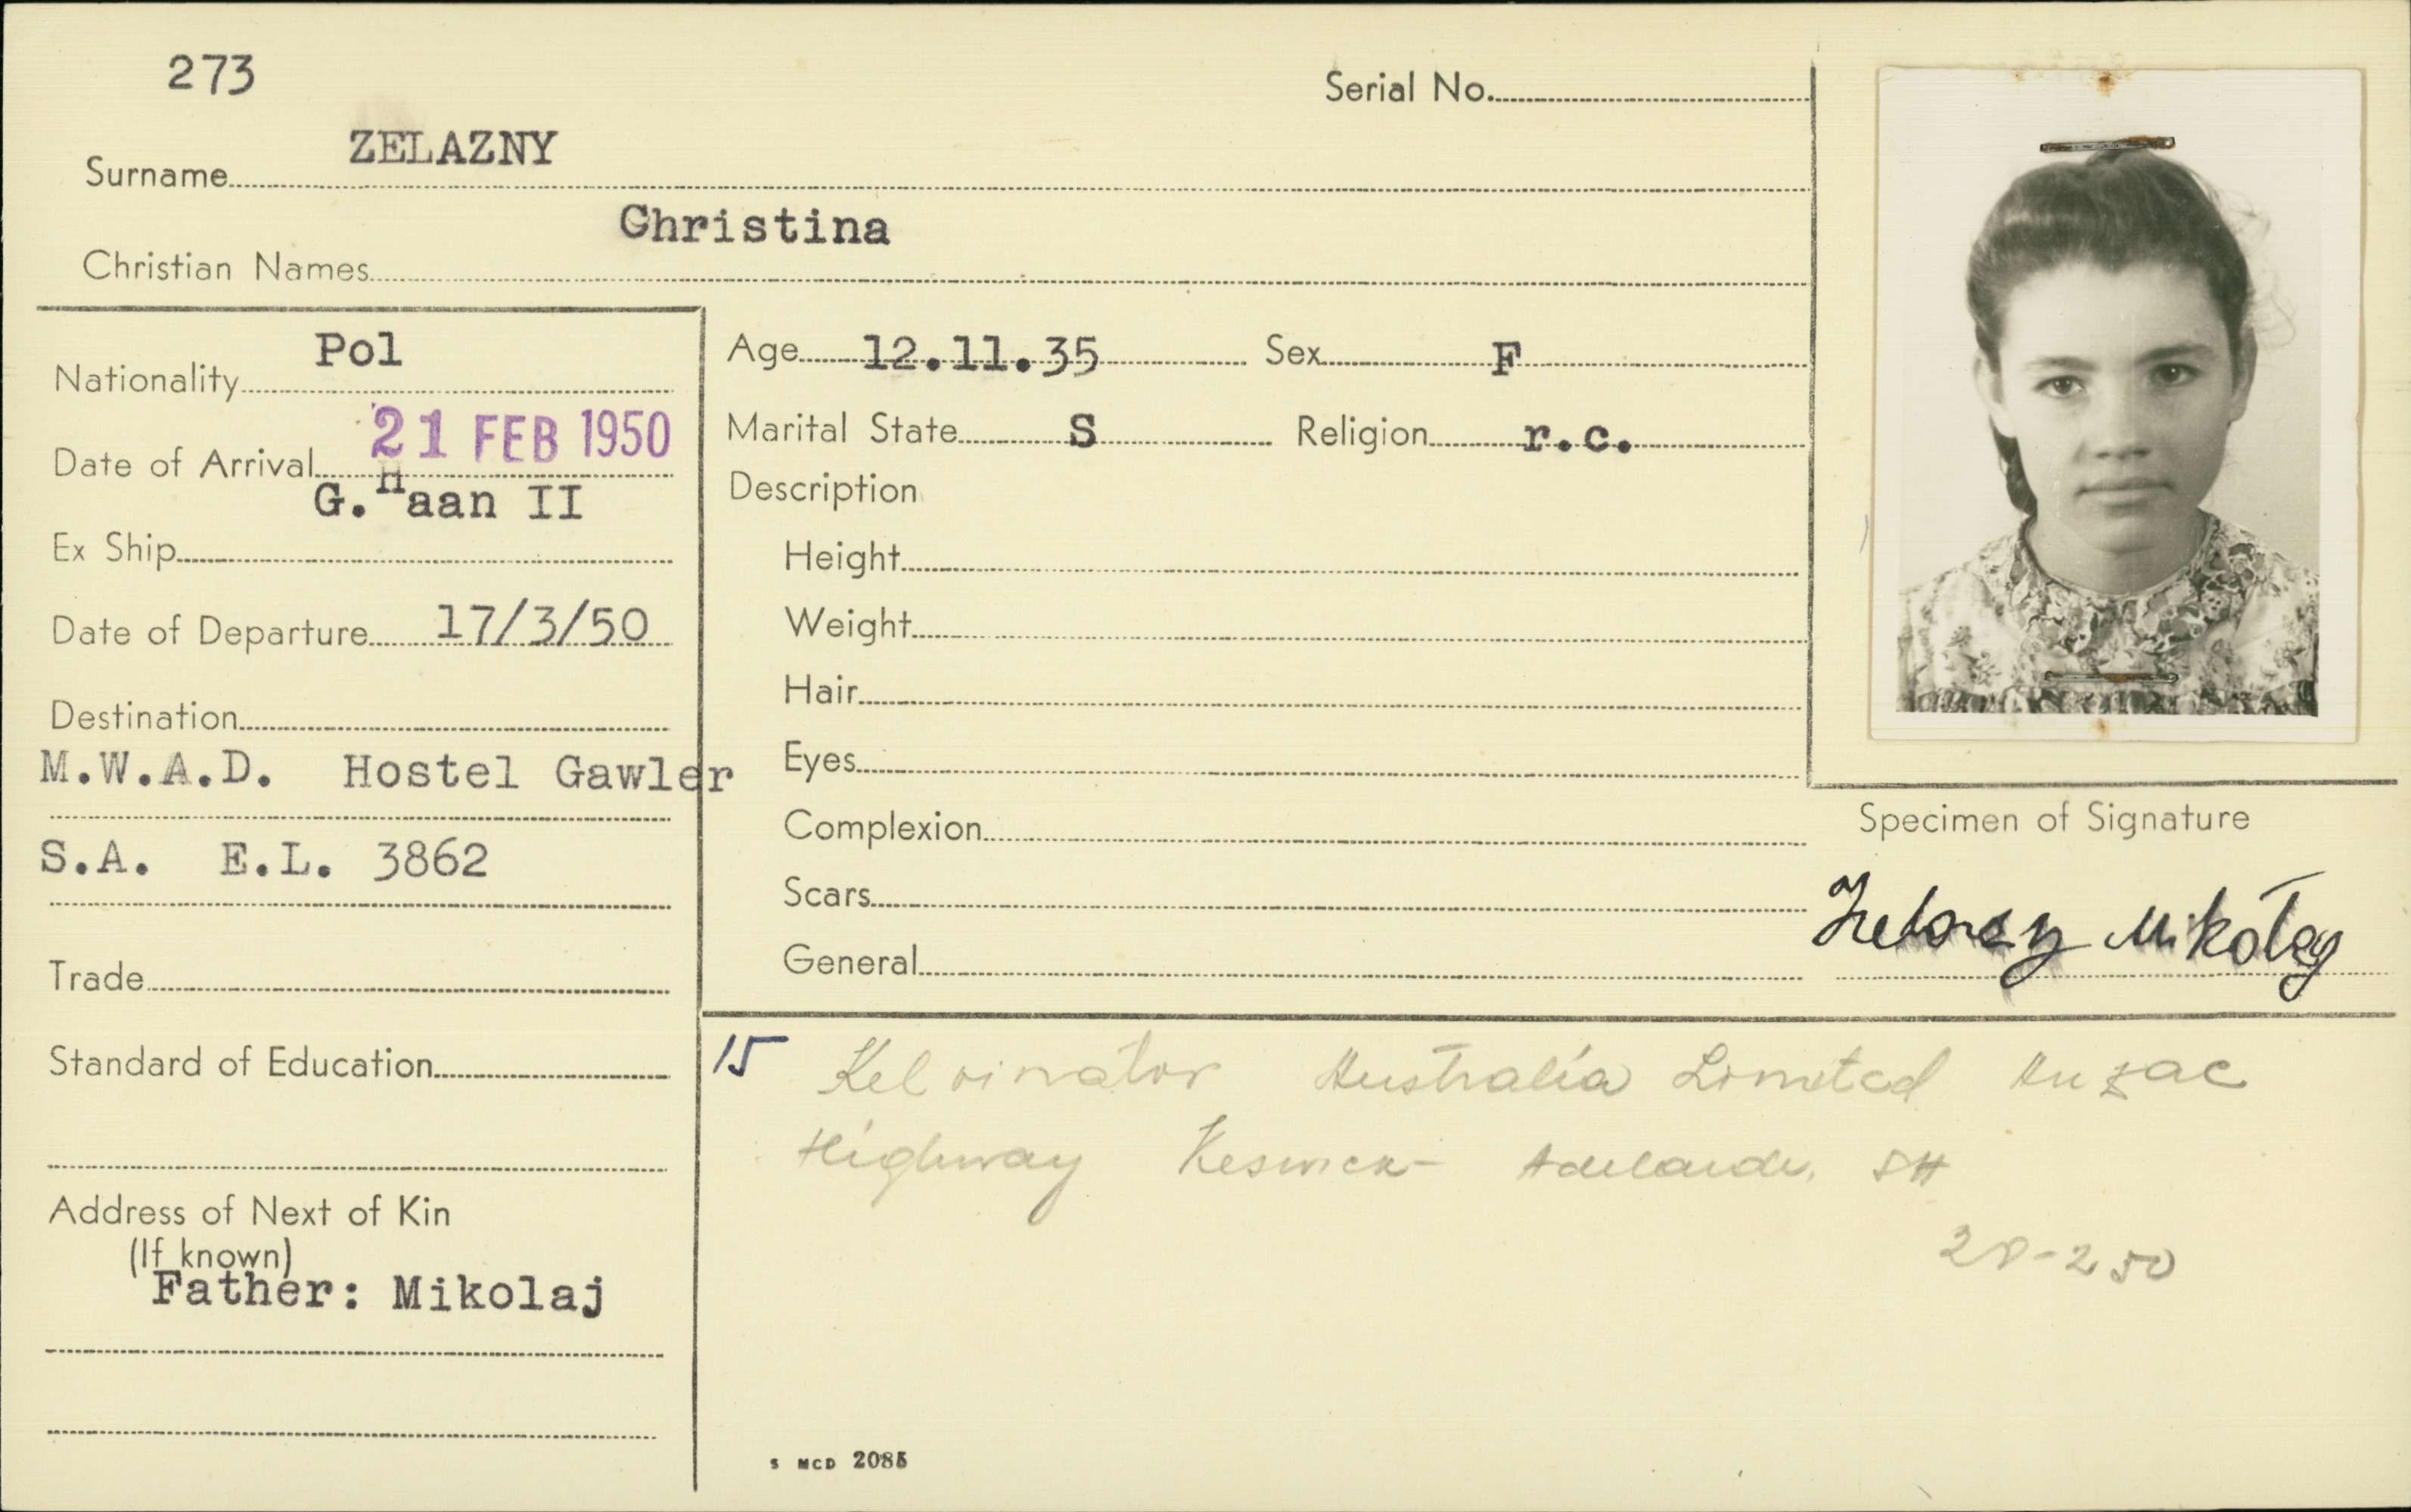 273
Serial No.
Surname ZELAZNY
Christian Names Christina
Nationality Pol
Date of Arrival 21 FEB 1950
Ex Ship G. Haan II
Date of Departure 17/3/50
Destination
M.W.A.D. Hostel Gawler
S.A. E.L. 3862
Trade
Standard of Education
Address of Next of Kin
(If known)
Father: Mikolaj
Age 12.11.35 Sex F
Marital State S Religion r.c.
Description
Height
Weight
Hair
Eyes
Complexion
Scars
General
Specimen of Signature
Zelazny Mikołaj
15 Kelvinator Australia Limited Anzac
Highway Keswick - Adelaide. SA
28-2 50
S MCD 2085